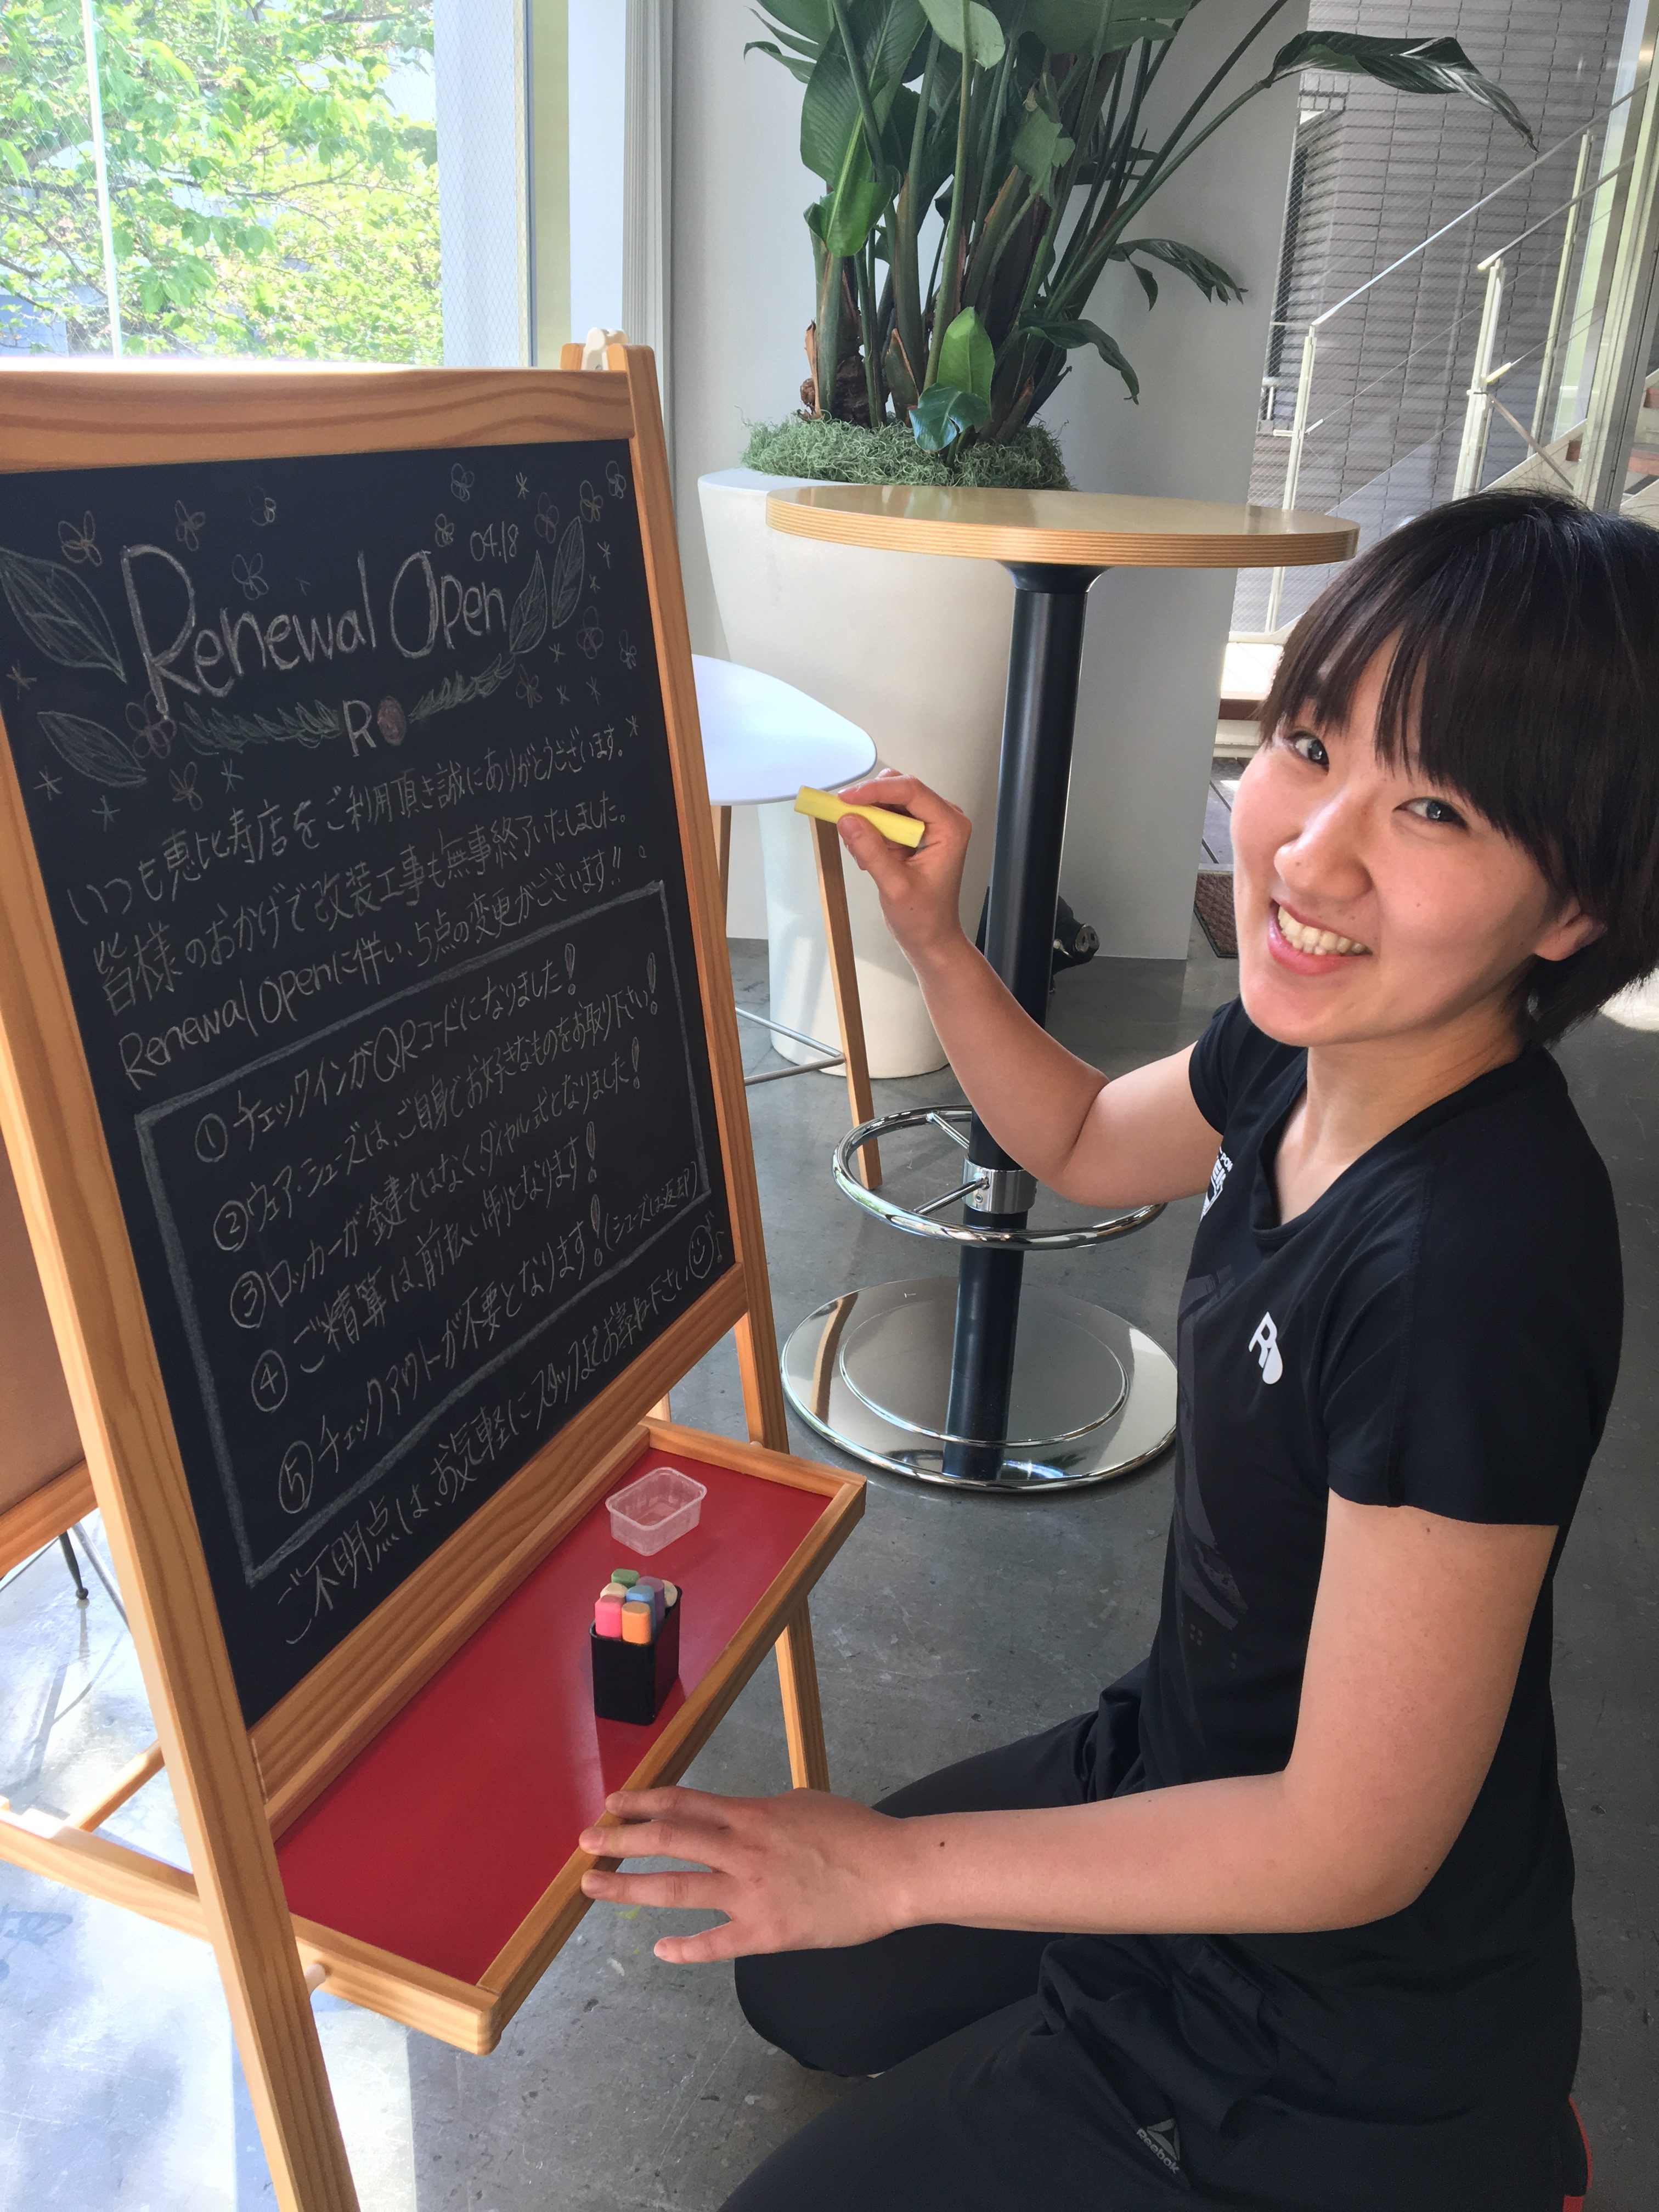 04.18
Renewal Open
R
いつも恵比寿店をご利用頂き誠にありがとうございます。
皆様のおかげで改装工事も無事終了いたしました。
Renewal Openに伴い、5点の変更がございます!!
①チェックインがQRコードになりました!
②ウェア・シューズは、ご自身でお好きなものをお取り下さい!
③ロッカーが鍵ではなく、ダイヤル式となりました!
④ご精算は、前払い制となります!
⑤チェックアウトが不要となります!(シューズは返却)
ご不明点は、お気軽にスタッフまでお尋ね下さい
R
Reebok